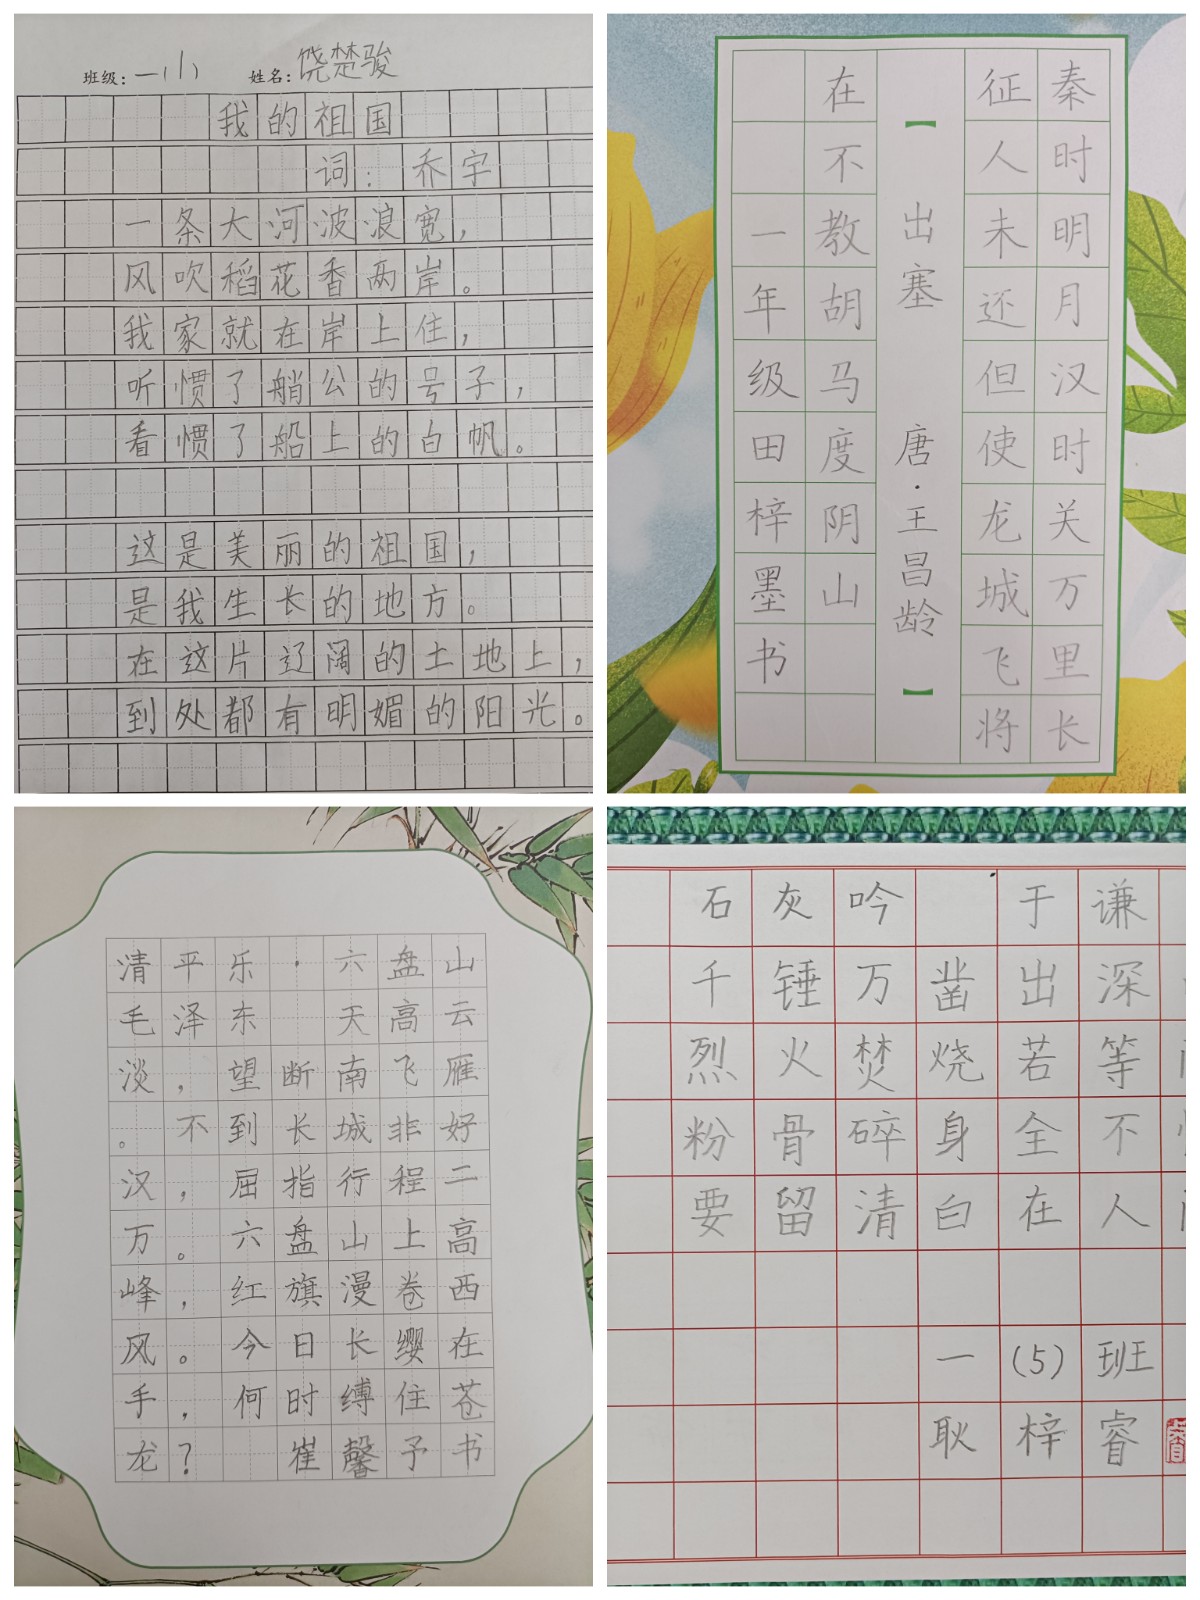 班级：一(1) 姓名：饶楚骏
我的祖国
词：乔宇
一条大河波浪宽，
风吹稻花香两岸。
我家就在岸上住，
听惯了艄公的号子，
看惯了船上的白帆。
这是美丽的祖国，
是我生长的地方。
在这片辽阔的土地上，
到处都有明媚的阳光。
秦时明月汉时关万里长
征人未还但使龙城飞将
【出塞 唐·王昌龄】
在不教胡马度阴山
一年级田梓墨书
清平乐·六盘山
毛泽东 天高云
淡，望断南飞雁
。不到长城非好
汉，屈指行程二
万。六盘山上高
峰，红旗漫卷西
风。今日长缨在
手，何时缚住苍
龙？ 崔馨予书
石灰吟 于谦
千锤万凿出深
烈火焚烧若等
粉骨碎身全不
要留清白在人
一(5)班
耿梓睿